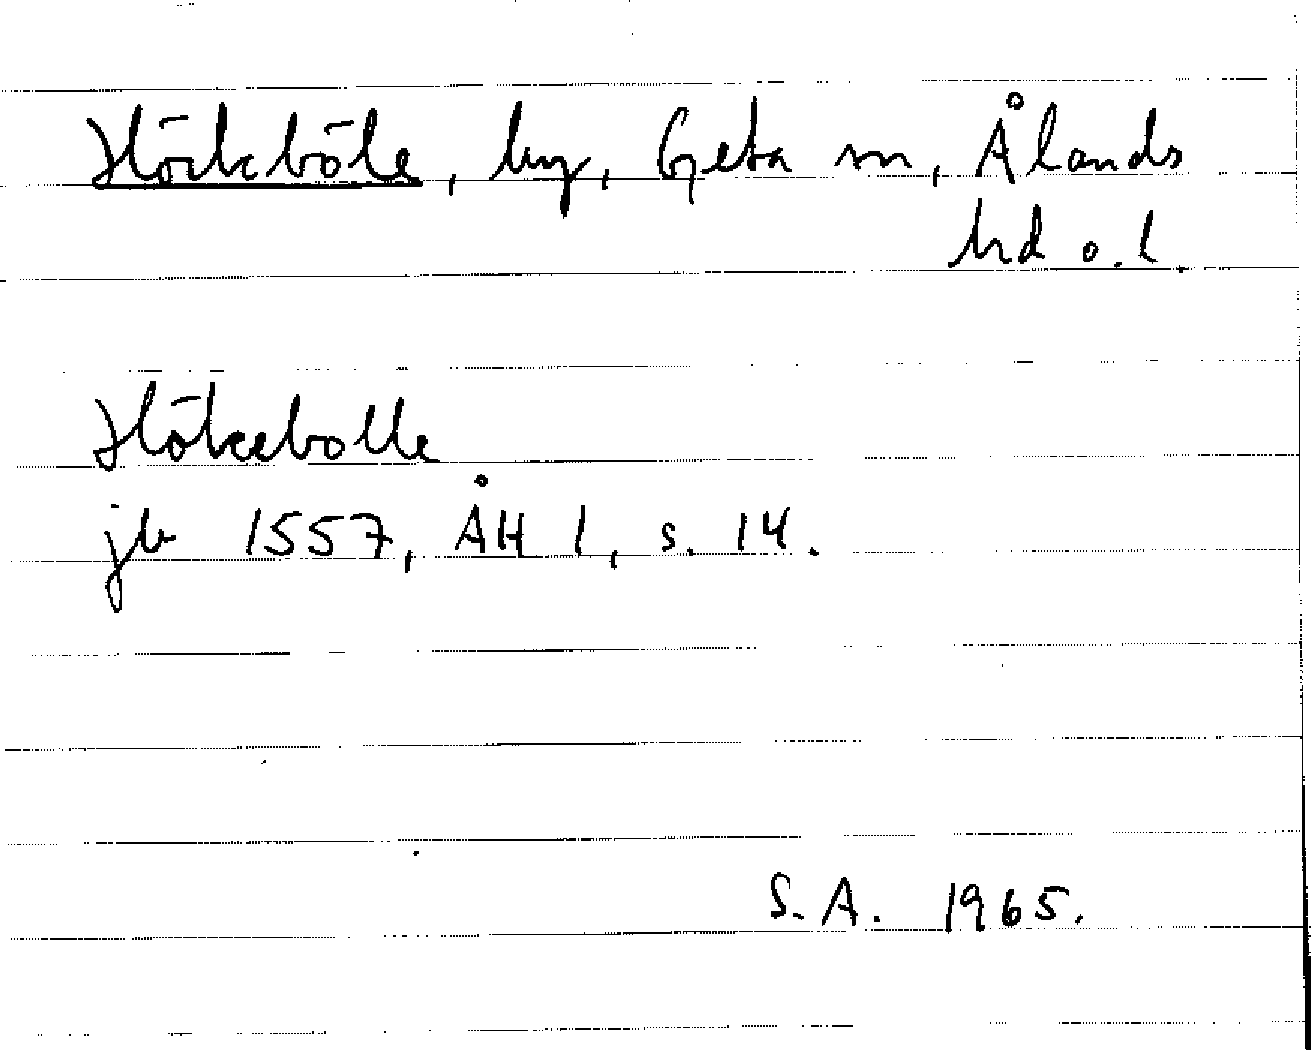 Hökböle, by, Geta sn, Ålands
hd o. l.
Hökebolle
jb 1557, ÅH 1, s. 14.
S. A. 1965.